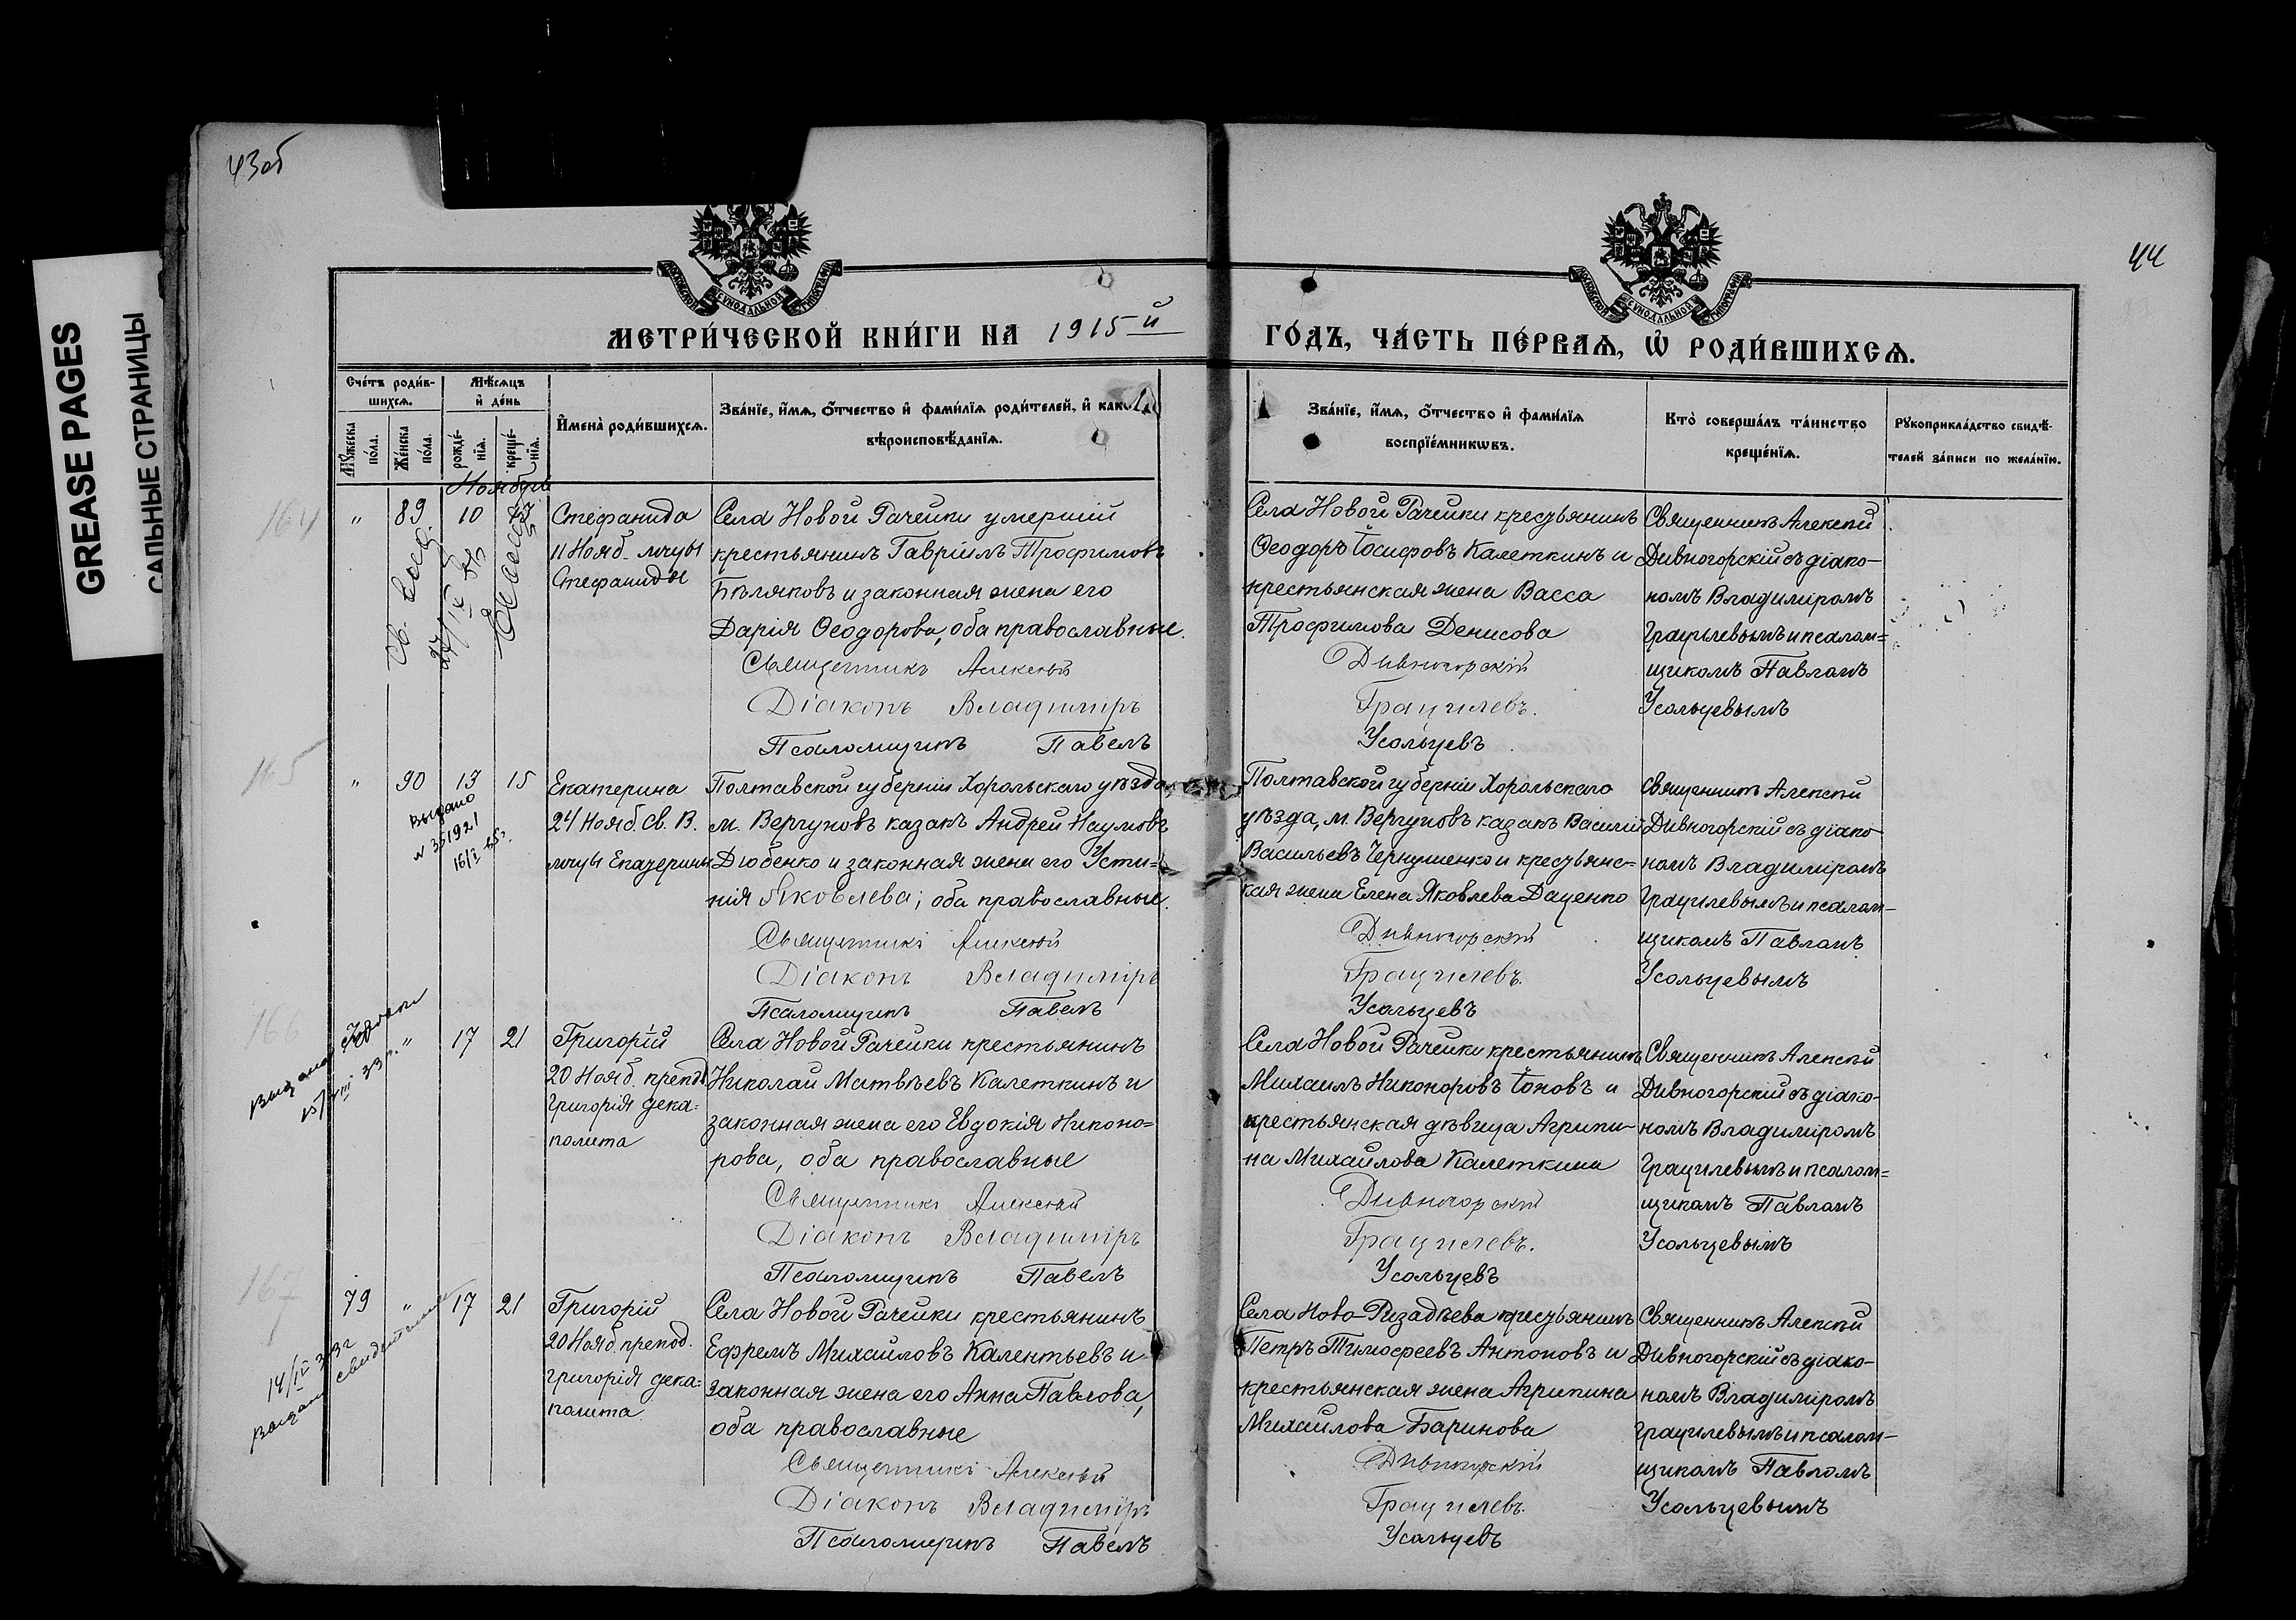 43об
44
GREASE PAGES
САЛЬНЫЕ СТРАНИЦЫ
МОСКОВСКОЙ СѴНОДАЛЬНОЙ ТИПОГРАФІИ
МОСКОВСКОЙ СѴНОДАЛЬНОЙ ТИПОГРАФІИ
МЕТРИ́ЧЕСКОЙ КНИ́ГИ НА 1915й
ГО́ДЪ, ЧА́СТЬ ПЕ́РВАЯ, Ѡ҆ РОДИ́ВШИХСЯ.
Сче́тъ роди́в-
шихся.
Мѣ́сяцъ
и҆ де́нь
Му́жеска
по́ла.
Же́нска
по́ла.
рожде́-
нїя.
креще́-
нїя.
И҆мена̀ роди́вшихся.
Зва́нїе, и҆́мя, ѻ҆́тчество и҆ фами́лїя роди́телей, и҆ како́й
вѣроисповѣ́данїя.
Зва́нїе, и҆́мя, ѻ҆́тчество и҆ фами́лїя
воспрїе́мникѡвъ.
Кто̀ соверша́лъ та́инство
креще́нїя.
Рукоприкла́дство свидѣ́-
телей за́писи по жела́нїю.
Ноября
164
" 89 10
Стефанида
11 Нояб. мчцы
Стефаниды
Села Новой Рачейки умершій
крестьянинъ Гавріилъ Трофимовъ
Бѣляковъ и законная жена его
Дарія Ѳеодорова, оба православные.
Священникъ Алексѣй
Діаконъ Владиміръ
Псаломщикъ Павелъ
Села Новой Рачейки крестьянинъ
Ѳеодоръ Іосифовъ Калеткинъ и
крестьянская жена Васса
Трофимова Денисова
Дивногорскій
Грацилевъ.
Усольцевъ
Священникъ Алексѣй
Дивногорскій съ діако-
номъ Владиміромъ
Грацилевымъ и псалом=
щикомъ Павломъ
Усольцевымъ
165
" 90 13 15
Выдано
№ 351921
Екатерина
24 Нояб. св. В.
мчцы Екатерины
Полтавской губерніи Хорольскаго уѣзда
м. Вергуновъ казакъ Андрей Наумовъ
Дюбенко и законная жена его Усти=
нія Яковлева; оба православные.
Священникъ Алексѣй
Діаконъ Владиміръ
Псаломщикъ Павелъ
Полтавской губерніи Хорольскаго
уѣзда, м. Вергуновъ казакъ Василій
Васильевъ Чернушенко и крестьянс=
кая жена Елена Яковлева Даценко
Дивногорскій
Грацилевъ.
Усольцевъ
Священникъ Алексѣй
Дивногорскій съ діако-
номъ Владиміромъ
Грацилевымъ и псалом-
щикомъ Павломъ
Усольцевымъ
166
" 17 21
Григорій
20 Нояб. препд
Григорія дека=
полита
Села Новой Рачейки крестьянинъ
Николай Матвѣевъ Калеткинъ и
законная жена его Евдокія Никоно=
рова, оба православные
Священникъ Алексѣй
Діаконъ Владиміръ
Псаломщикъ Павелъ
Села Новой Рачейки крестьянинъ
Михаилъ Никоноровъ Іоновъ и
крестьянская дѣвица Агрипи-
на Михайлова Калеткина
Дивногорскій
Грацилевъ.
Усольцевъ
Священникъ Алексѣй
Дивногорскій съ діако-
номъ Владиміромъ
Грацилевымъ и псалом=
щикомъ Павломъ
Усольцевымъ
167
79 " 17 21
Выдано свидетельство
Григорій
20 Нояб. препод.
Григорія дека=
полита.
Села Новой Рачейки крестьянинъ
Ефремъ Михайловъ Калентьевъ и
законная жена его Анна Павлова,
оба православные
Священникъ Алексѣй
Діаконъ Владиміръ
Псаломщикъ Павелъ
Села Ново-Ризадѣева крестьянинъ
Петръ Тимоѳеевъ Антоновъ и
крестьянская жена Агрипина
Михайлова Баринова
Дивногорскій
Грацилевъ.
Усольцевъ
Священникъ Алексѣй
Дивногорскій съ діако-
номъ Владиміромъ
Грацилевымъ и псалом-
щикомъ Павломъ
Усольцевымъ